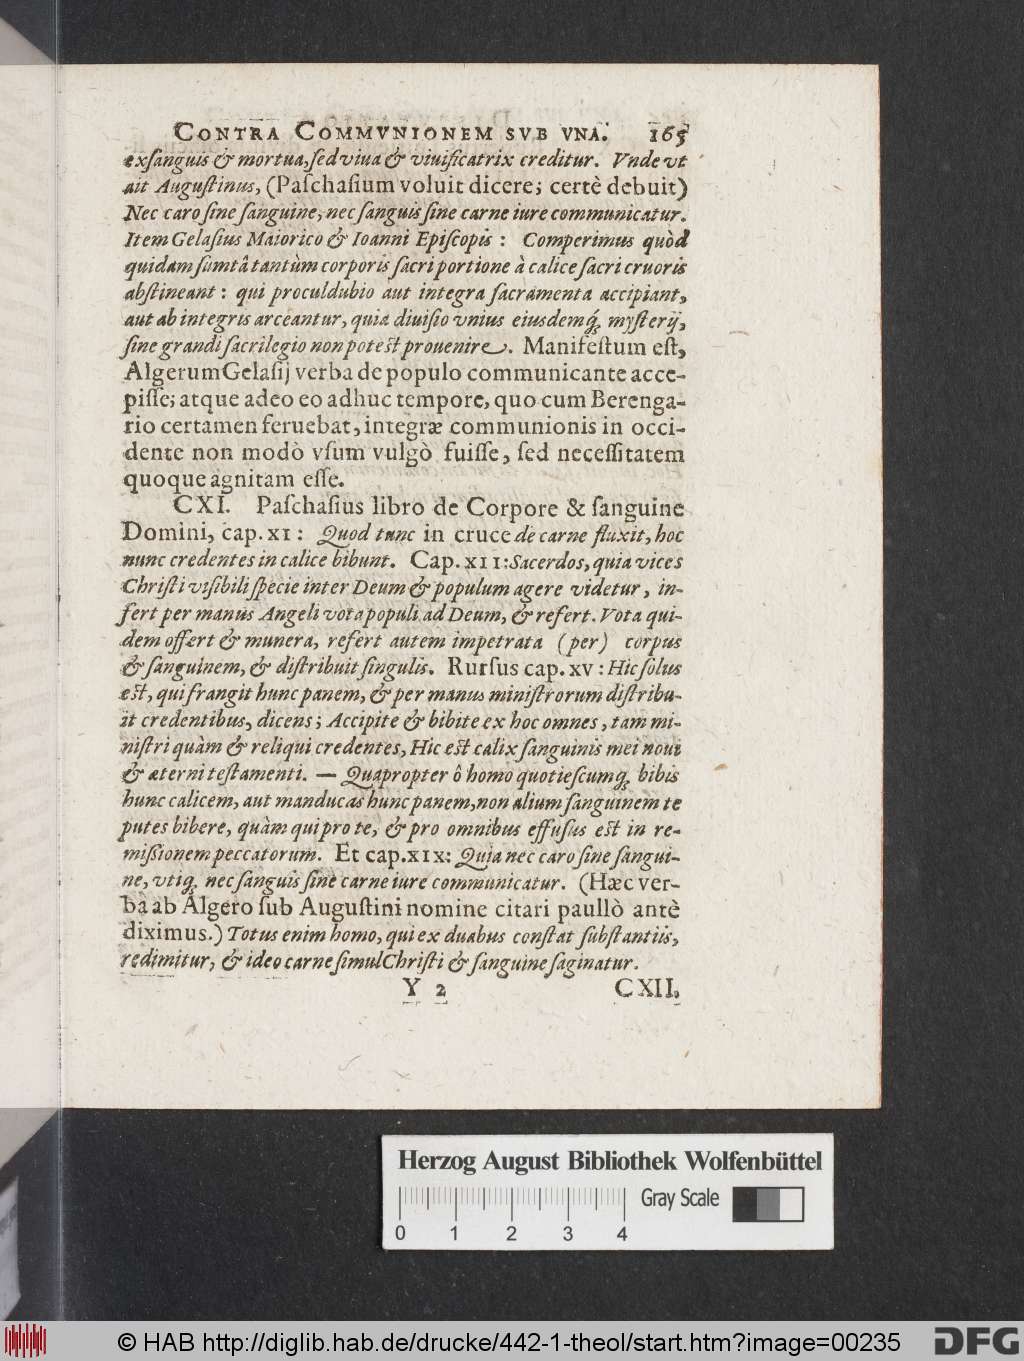 CONTRA COMMVNIONEM SVB VNA. 165
exſanguis & mortua, ſed viua & viuificatrix creditur. Vnde vt
ait Auguſtinus, (Paſchaſium voluit dicere; certè debuit)
Nec caro ſine ſanguine, nec ſanguis ſine carne iure communicatur.
Item Gelaſius Maiorico & Ioanni Epiſcopis: Comperimus quòd
quidam ſumtâ tantùm corporis ſacri portione à calice ſacri cruoris
abſtineant: qui proculdubio aut integra ſacramenta accipiant,
aut ab integris arceantur, quia diuiſio vnius eiusdemq́; myſterij,
ſine grandi ſacrilegio non poteſt prouenire. Manifeſtum eſt,
Algerum Gelaſij verba de populo communicante acce-
piſſe; atque adeo eo adhuc tempore, quo cum Berenga-
rio certamen feruebat, integræ communionis in occi-
dente non modò vſum vulgò fuiſſe, ſed neceſſitatem
quoque agnitam eſſe.
CXI. Paſchaſius libro de Corpore & ſanguine
Domini, cap. XI: Quod tunc in cruce de carne fluxit, hoc
nunc credentes in calice bibunt. Cap. XII: Sacerdos, quia vices
Chriſti viſibili ſpecie inter Deum & populum agere videtur, in-
fert per manus Angeli vota populi ad Deum, & refert. Vota qui-
dem offert & munera, refert autem impetrata (per) corpus
& ſanguinem, & diſtribuit ſingulis. Rurſus cap. XV: Hic ſolus
eſt, qui frangit hunc panem, & per manus miniſtrorum diſtribu-
it credentibus, dicens; Accipite & bibite ex hoc omnes, tam mi-
niſtri quàm & reliqui credentes, Hic eſt calix ſanguinis mei noui
& æterni teſtamenti. — Quapropter ô homo quotieſcumq́; bibis
hunc calicem, aut manducas hunc panem, non alium ſanguinem te
putes bibere, quàm qui pro te, & pro omnibus effuſus eſt in re-
miſſionem peccatorum. Et cap. XIX: Quia nec caro ſine ſangui-
ne, vtiq; nec ſanguis ſine carne iure communicatur. (Hæc ver-
ba ab Algero ſub Auguſtini nomine citari paullò antè
diximus.) Totus enim homo, qui ex duabus conſtat ſubſtantiis,
redimitur, & ideo carne ſimul Chriſti & ſanguine ſaginatur.
Y 2 CXII.
Herzog August Bibliothek Wolfenbüttel
Gray Scale
0 1 2 3 4
© HAB http://diglib.hab.de/drucke/442-1-theol/start.htm?image=00235
DFG